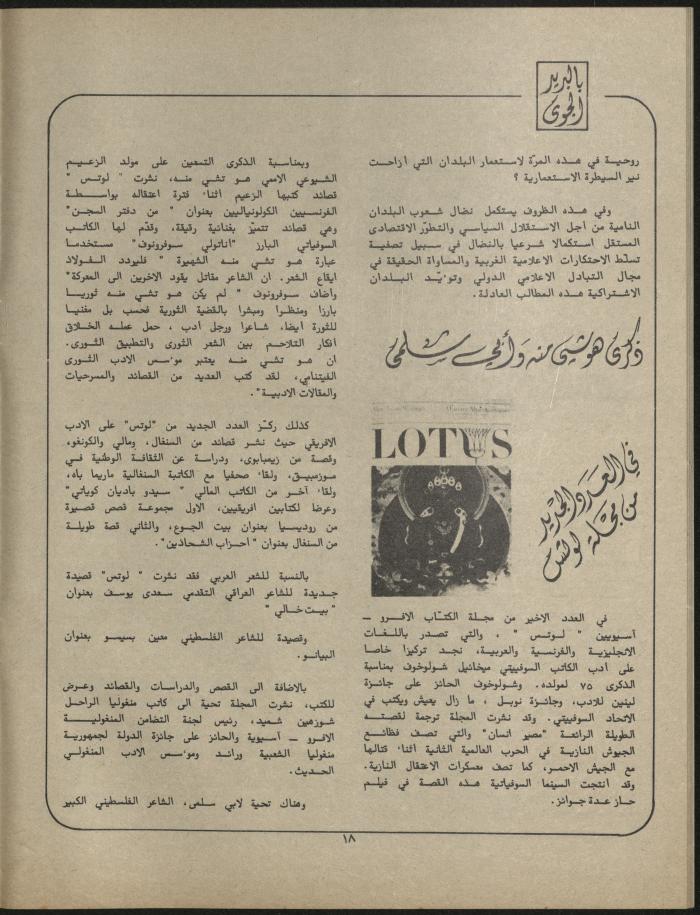 بالبريد
الجوي
روحية في هذه المرّة لاستعمار البلدان التي ازاحت
نير السيطرة الاستعمارية ؟
وفي هذه الظروف يستكمل نضال شعوب البلدان
النامية من أجل الاستقلال السياسي والتطوّر الاقتصادى
المستقل استكمالا شرعيا بالنضال في سبيل تصفية
تسلّط الاحتكارات الاعلامية الغربية والمساواة الحقيقة في
مجال التبادل الاعلامي الدولي وتوءيّد البلدان
الاشتراكية هذه المطالب العادلة.
ذكرى هوشي منه وأبي سلمى
LOTUS
في العدد الجديد
من مجلة لوتس
في العدد الاخير من مجلة الكتّاب الافرو –
آسيويين " لوتس " ، والتي تصدر باللغات
الانجليزية والفرنسية والعربية، نجد تركيزا خاصا
على أدب الكاتب السوفييتي ميخائيل شولوخوف بمناسبة
الذكرى ٧٥ لمولده. وشولوخوف الحائز على جائزة
لينين للادب، وجائزة نوبل ، ما زال يعيش ويكتب في
الاتحاد السوفييتي. وقد نشرت المجلة ترجمة لقصته
الطويلة الرائعة "مصير انسان" والتي تصف فظائع
الجيوش النازية في الحرب العالمية الثانية أثناء قتالها
مع الجيش الاحمر، كما تصف معسكرات الاعتقال النازية.
وقد أنتجت السينما السوفياتية هذه القصة في فيلم
حاز عدة جوائز.
وبمناسبة الذكرى التسعين على مولد الزعيم
الشيوعي الاممي هو تشي منه، نشرت " لوتس "
قصائد كتبها الزعيم أثناء فترة اعتقاله بواسطة
الفرنسيين الكولونياليين بعنوان " من دفتر السجن"
وهي قصائد تتميّز بغنائية رقيقة، وقدّم لها الكاتب
السوفياتي البارز "أناتولي سوفرونوف" مستخدما
عبارة هو تشي منه الشهيرة " فليردد الفولاذ
ايقاع الشعر. ان الشاعر مقاتل يقود الاخرين الى المعركة"
وأضاف سوفرونوف " لم يكن هو تشي منه ثوريا
بارزا ومنظرا ومبشرا بالقضية الثورية فحسب بل مغنيا
للثورة أيضا، شاعرا ورجل أدب ، حمل عمله الخلاق
أفكار التلاحم بين الشعر الثورى والتطبيق الثورى.
ان هو تشي منه يعتبر موءسس الادب الثورى
الفيتنامي، لقد كتب العديد من القصائد والمسرحيات
والمقالات الادبية".
كذلك ركّز العدد الجديد من "لوتس" على الادب
الافريقي حيث نشر قصائد من السنغال، ومالي والكونغو،
وقصة من زيمبابوى، ودراسة عن الثقافة الوطنية في
موزمبيق، ولقاء صحفيا مع الكاتبة السنغالية ماريما باه،
ولقاء آخر من الكاتب المالي " سيدو باديان كوياتي"
وعرضا لكتابين افريقيين، الاول مجموعة قصص قصيرة
من روديسيا بعنوان بيت الجوع، والثاني قصة طويلة
من السنغال بعنوان "أحزاب الشحاذين".
بالنسبة للشعر العربي فقد نشرت " لوتس" قصيدة
جديدة للشاعر العراقي التقدمي سعدى يوسف بعنوان
" بيت خالي "
وقصيدة للشاعر الفلسطيني معين بسيسو بعنوان
البيانو.
بالاضافة الى القصص والدراسات والقصائد وعرض
للكتب، نشرت المجلة تحية الى كاتب منغوليا الراحل
شوزهين شميد، رئيس لجنة التضامن المنغولية
الافرو – آسيوية والحائز على جائزة الدولة لجمهورية
منغوليا الشعبية ورائد وموءسس الادب المنغولي
الحديث.
وهناك تحية لابي سلمى، الشاعر الفلسطيني الكبير
١٨